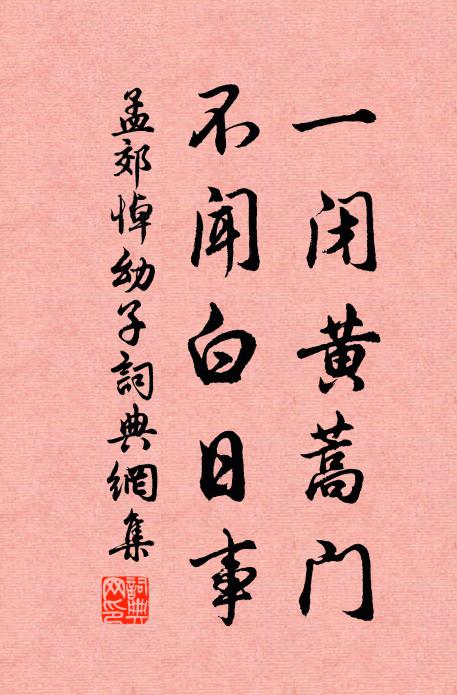 一闭黄蒿门
不闻白日事
孟郊悼幼子詞典網集
詞典网印